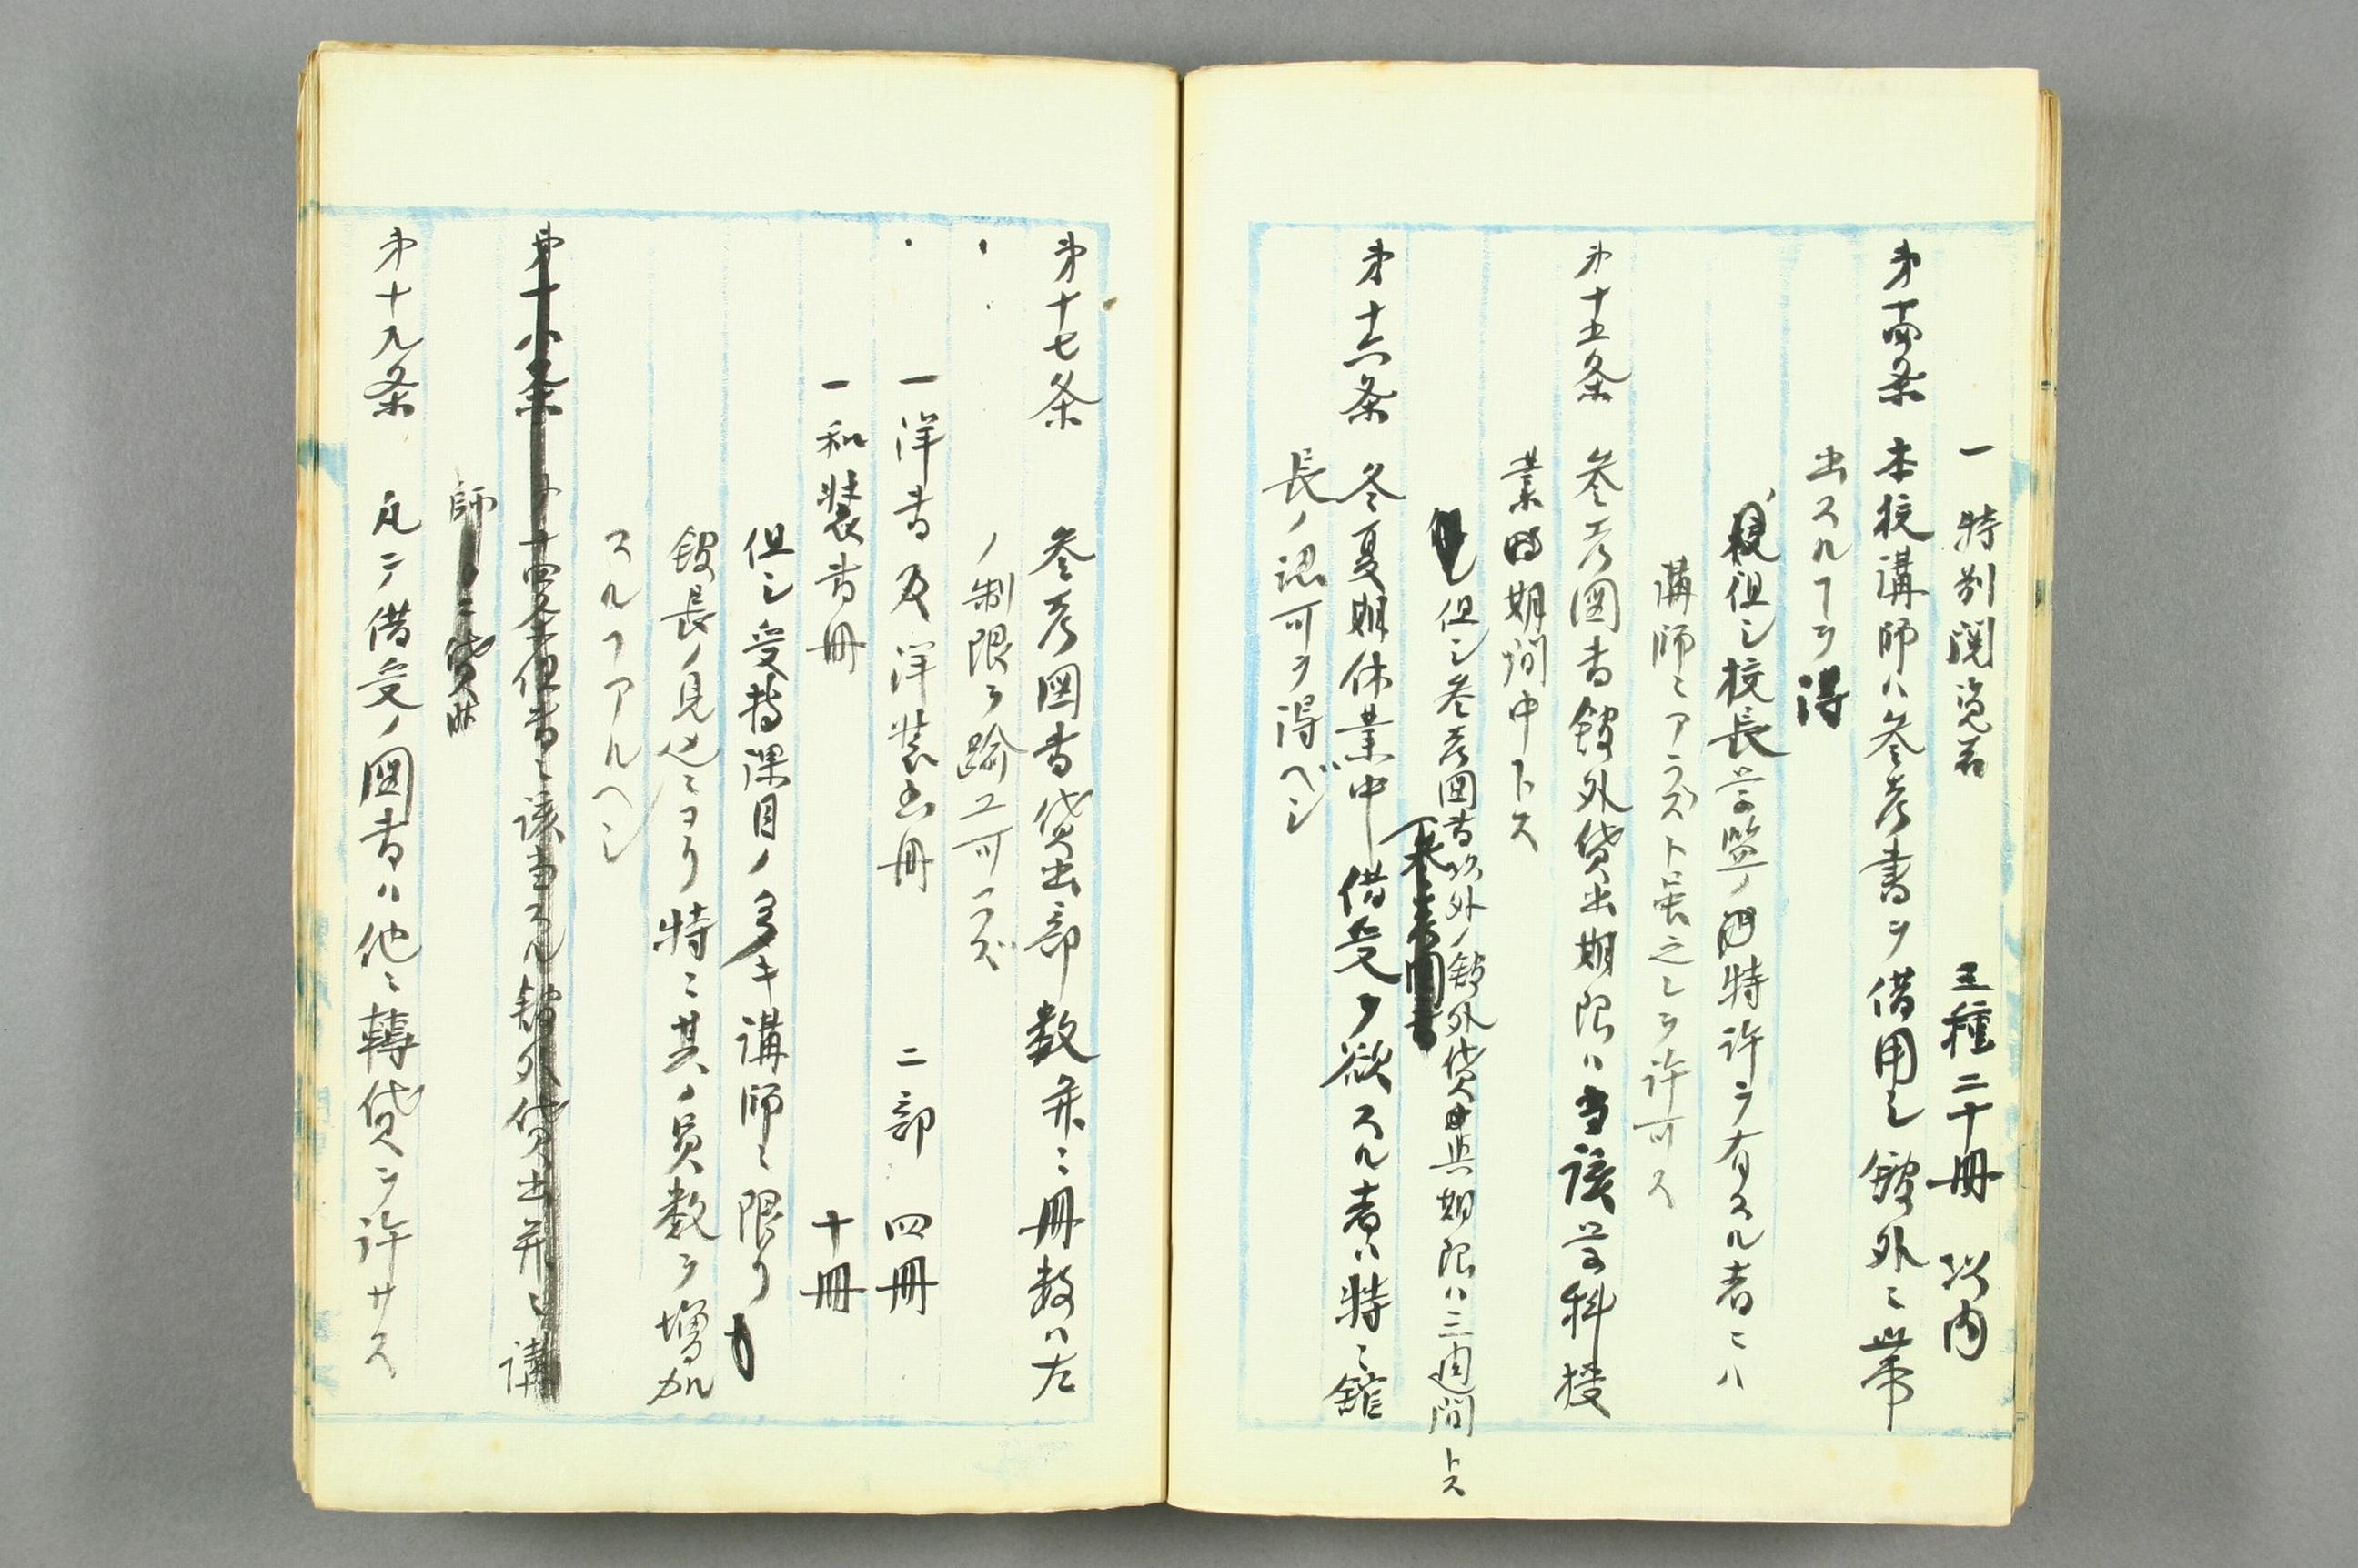 一 特別閲覧者 五種二十冊 以内
第十四条 本校講師ハ参考書ヲ借用シ館外ニ携帯
出スルヿヲ得
但シ校長学監ノ特許ヲ有スル者ニハ
講師ニアラズト虽之レヲ許可ス
第十五条 参考図書館外貸出期限ハ当該学科授
業時期間中トス
但シ参考図書以外ノ館外貸出期限ハ三週間トス
第十六条 冬夏期休業中借受ヲ欲スル者ハ特ニ館
長ノ認可ヲ得ベシ
第十七条 参考図書貸出部数并ニ冊数ハ左
ノ制限ヲ踰ユ可ラズ
一洋書及洋装書冊 二部 四冊
一和装書冊 十冊
但シ受持課目ノ多キ講師ニ限リ
館長ノ見込ニヨリ特ニ其ノ員数ヲ増加
スルヿアルヘシ
第十八条 第十四条但書ニ該当スル館外貸出并ニ講
師
第十九条 凡テ借受ノ図書ハ他ニ轉貸ヲ許サス